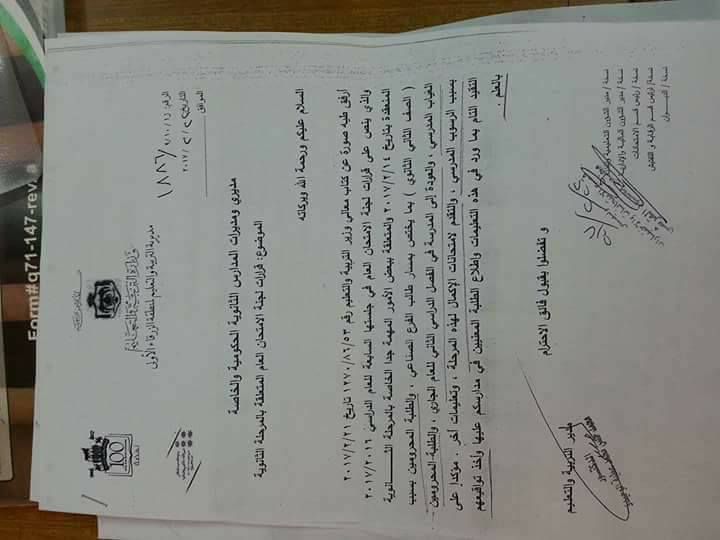 وزارة التربية والتعليم
مديرية التربية والتعليم لمنطقة الزرقاء الأولى
100
الموافق
مديري ومديرات المدارس الثانوية الحكومية والخاصة
الموضوع: قرارات لجنة الامتحان العام المتعلقة بالمرحلة الثانوية
السلام عليكم ورحمة الله وبركاته
أرفق طيه صورة عن كتاب معالي وزير التربية والتعليم رقم ١٢٧٠/٨٦/٥٣ تاريخ ٢٠١٧/٢/٢١
والذي ينص على قرارات لجنة الامتحان العام في جلستها السابعة للعام الدراسي ٢٠١٧/٢٠١٦
المنعقدة بتاريخ ٢٠١٧/٢/١٤ والمتعلقة ببعض الأمور المهمة جدا الخاصة بالمرحلة الثـــــانوية
( الصف الثاني الثانوي ) بما يختص بمسار طالب الفرع الصناعي ، والطلبة المحرومين بسبب
الغياب المدرسي ، والعودة إلى المدرسة في الفصل الدراسي الثاني للعام الجاري ، والطلبة المحرومين
بسبب الرسوب المدرسي ، والتقدم لامتحانات الإكمال لهذه المرحلة ، وتعليمات أخر . مؤكدا على
التقيد التام بما ورد في هذه التعليمات واطلاع الطلبة المعنيين في مدارسكم عليها وأخذ تواقيعهم
بالعلم .
و تفضلوا بقبول فائق الاحترام
مدير التربية والتعليم
نسخة / مدير الشؤون التعليمية
نسخة / مدير الشؤون المالية والإدارية
نسخة / رئيس قسم الامتحانات
نسخة / رئيس قسم الرقابة و التفتيش
نسخة / الديـــوان
Form#q71-147-rev. a